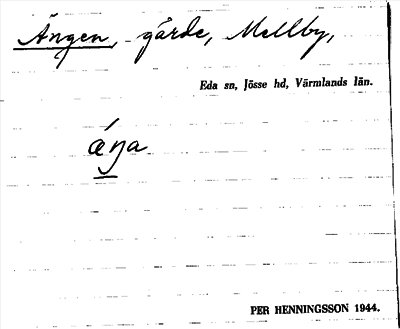 Ängen, gärde, Mellby,
Eda sn, Jösse hd, Värmlands län.
ǽŋa
PER HENNINGSSON 1944.